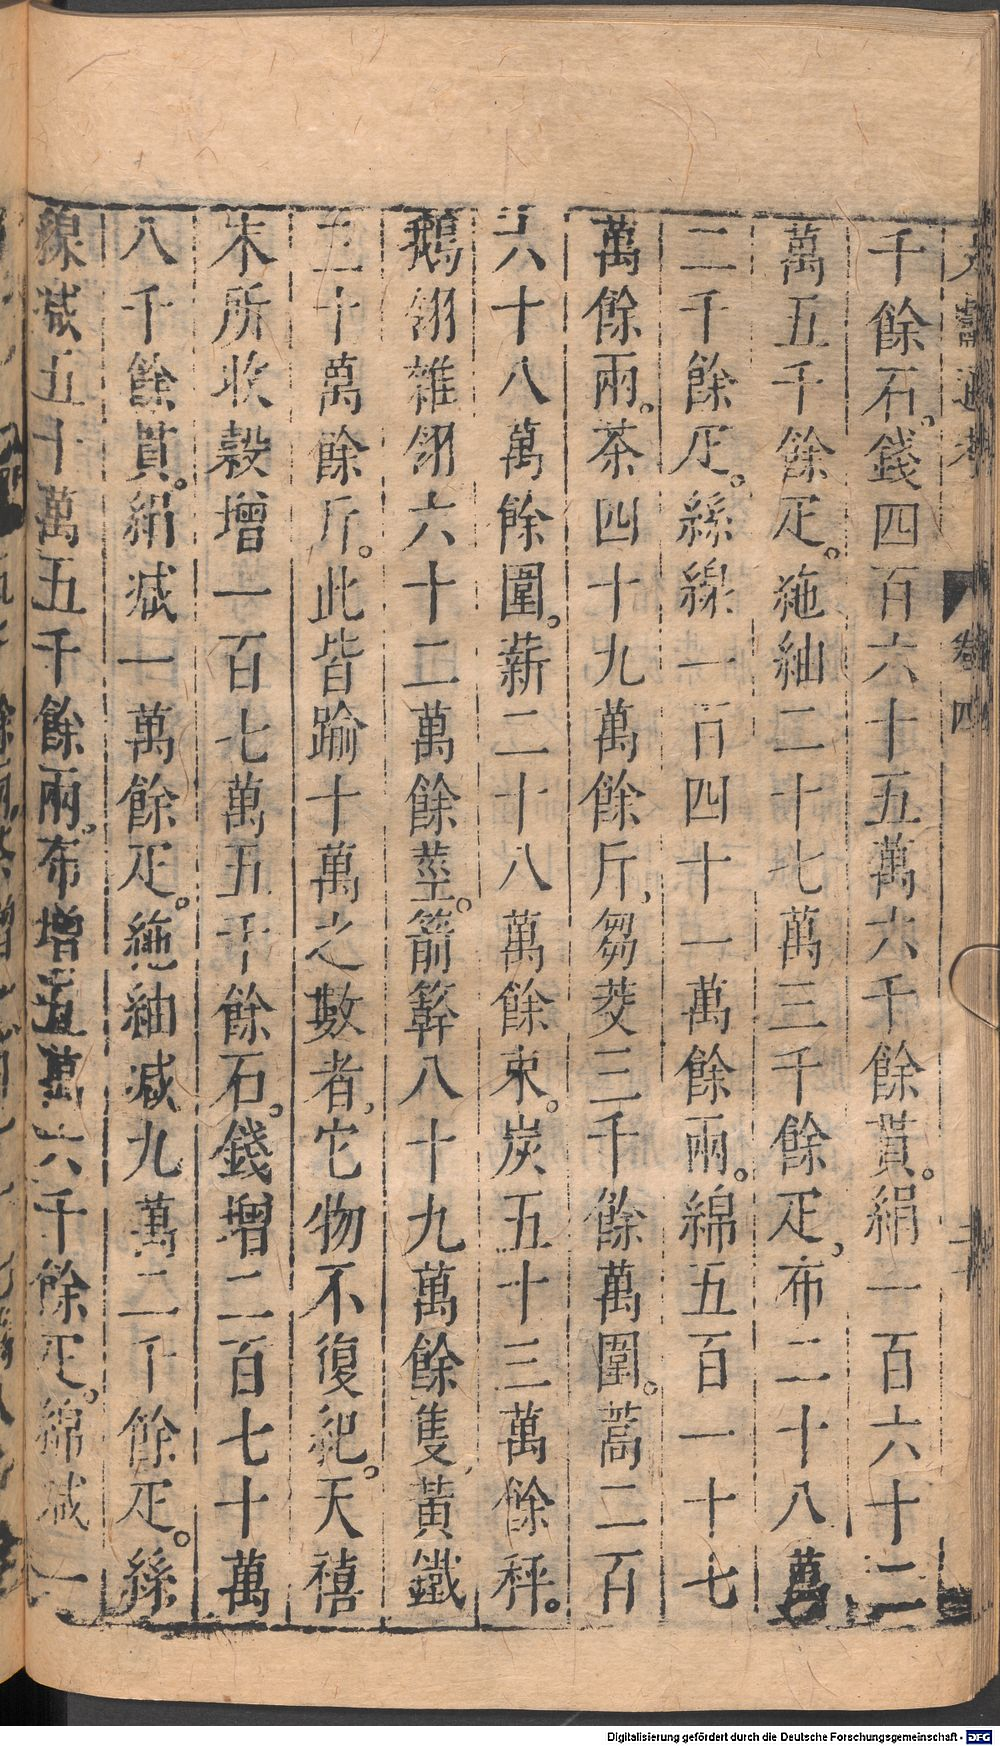 文獻通考 卷四
千餘石。錢四百六十五萬六千餘貫。絹一百六十二
萬五千餘疋。絁紬二十七萬三千餘疋，布二十八萬
二千餘疋。絲線一百四十一萬餘兩。綿五百一十七
萬餘兩。茶四十九萬餘斤，芻茭三千餘萬圍。蒿二百
六十八萬餘圍。薪二十八萬餘束。炭五十三萬餘秤。
鵝翎雜翎六十二萬餘莖。箭簳八十九萬餘隻，黃鐵
三十萬餘斤。此皆踰十萬之數者，它物不復紀。天禧
末所收穀增一百七萬五千餘石。錢增二百七十萬
八千餘貫。絹减一萬餘疋。絁紬减九萬二千餘疋。絲
線减五十萬五千餘兩。布增五萬六千餘疋。綿减一
Digitalisierung gefördert durch die Deutsche Forschungsgemeinschaft - DFG